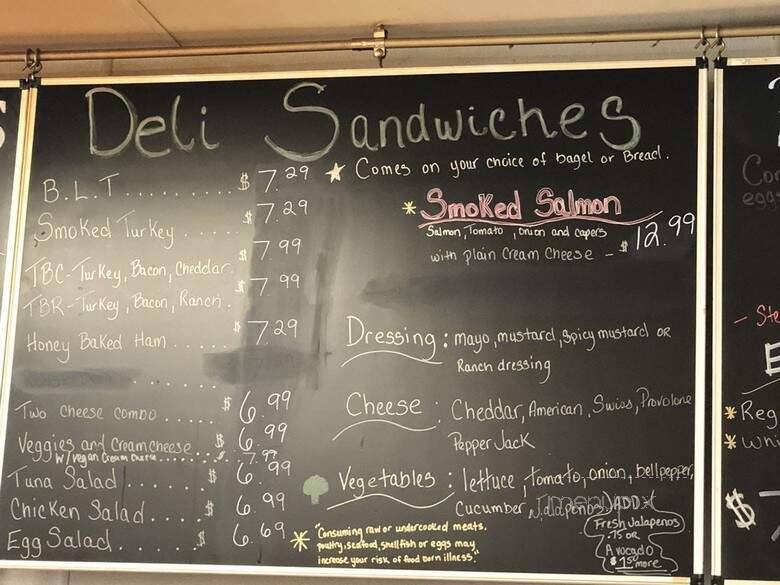 Deli Sandwiches
B.L.T. ........ $7.29
Smoked Turkey ...... $7.29
TBC-Turkey, Bacon, Cheddar. $7.99
TBR-Turkey, Bacon, Ranch. $7.99
Honey Baked Ham ...... $7.29
Two Cheese combo ..... $6.99
Veggies and Cream cheese $6.99
w/vegan Cream Cheese ........ 7.99
Tuna Salad ..... $6.99
Chicken Salad .... $6.99
Egg Salad ...... $6.69
★ Comes on your choice of bagel or Bread.
* Smoked Salmon
Salmon, Tomato, Onion and capers
with plain Cream Cheese - $12.99
Dressing: mayo, mustard, spicy mustard or
Ranch dressing
Cheese: Cheddar, American, Swiss, Provolone
Pepper Jack
Vegetables: lettuce, tomato, onion, bellpepper,
Cucumber, Jalapenos
ADD
Fresh Jalapenos
.75 OR
Avocado
$1.50 more
* "Consuming raw or undercooked meats,
poultry, seafood, shellfish or eggs may
increase your risk of food born illness."
egg
- Ste
* Reg
* Whi
$7